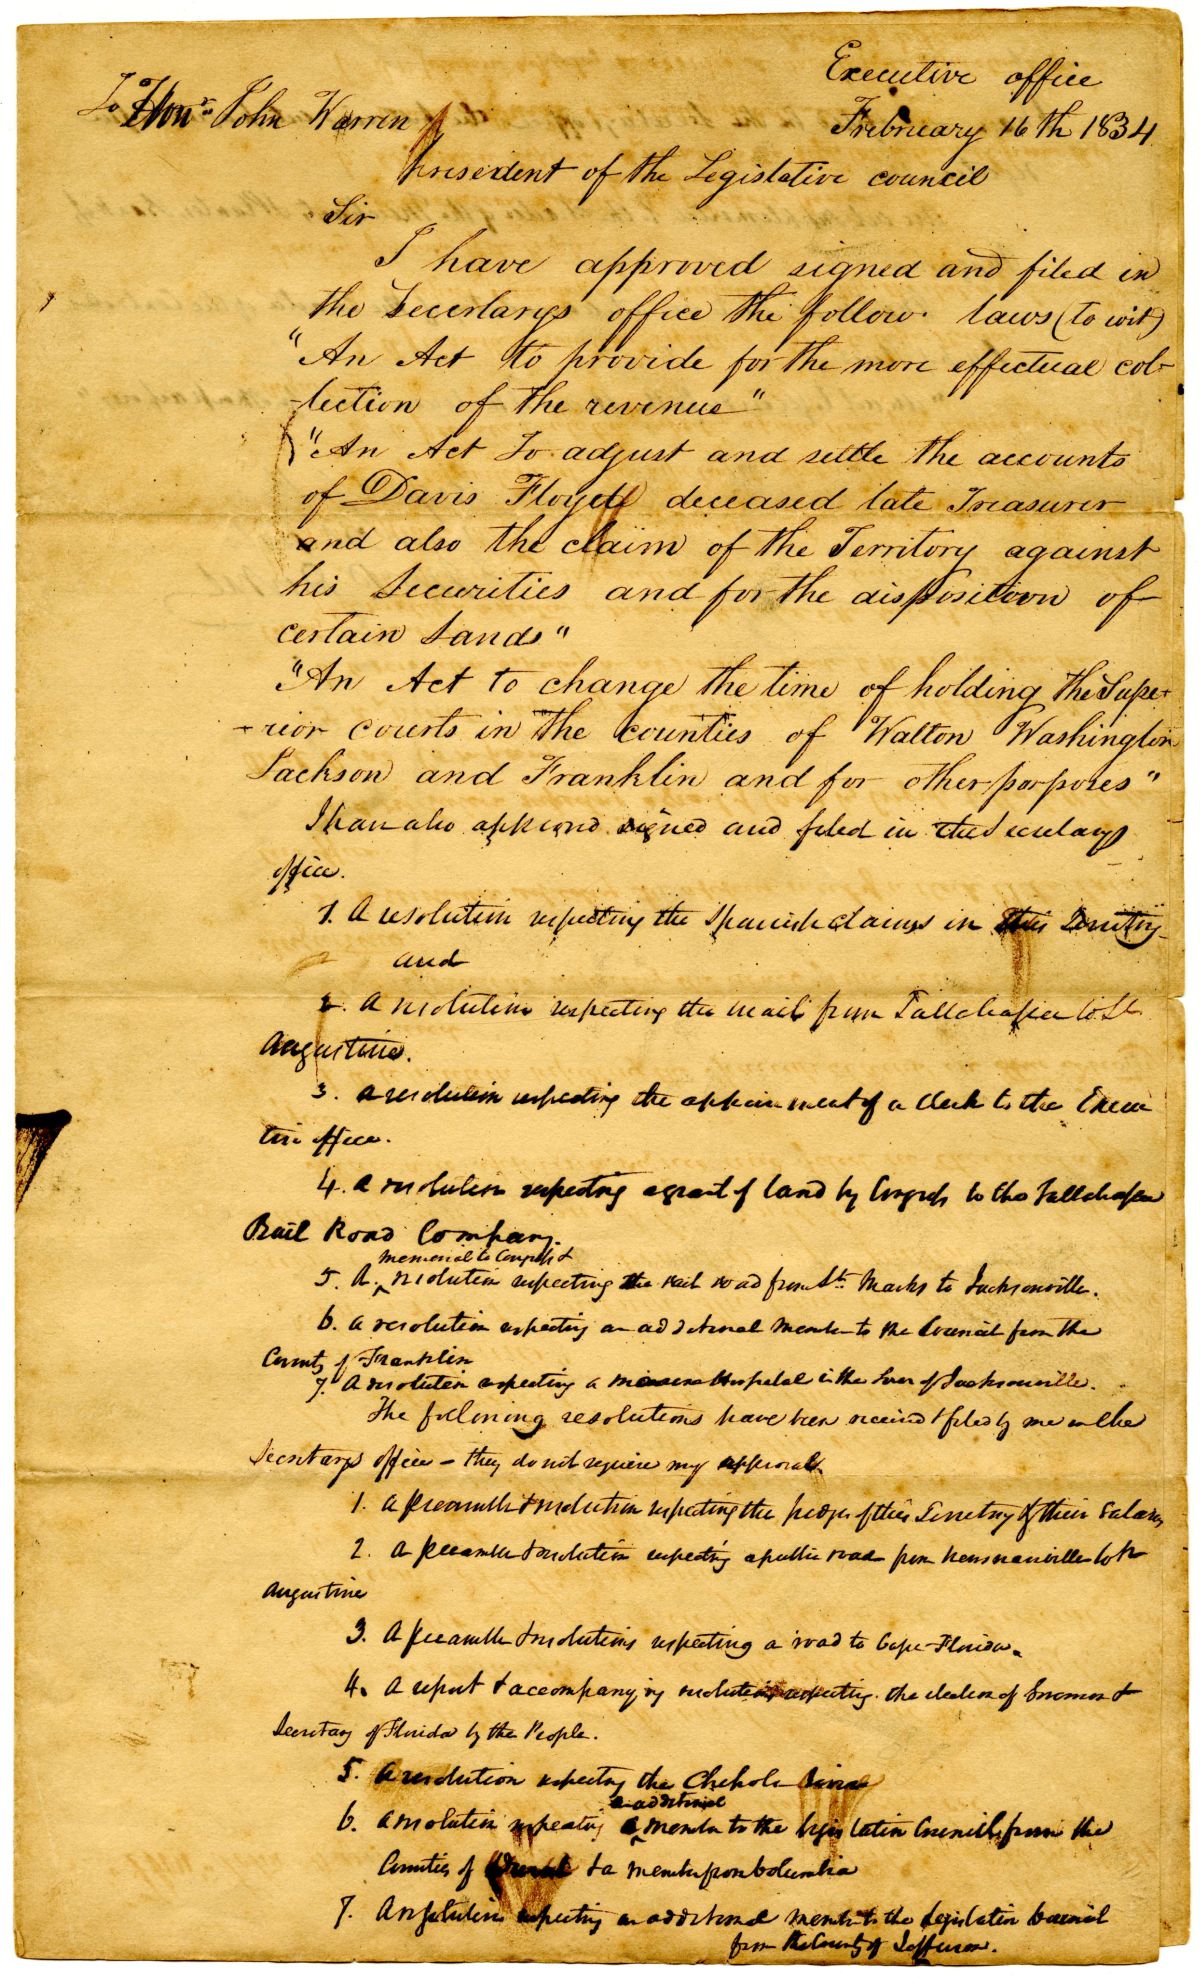 Executive office
To Honr John Warren
Frebruary 16th 1834
President of the Legislative council
Sir
I have approved signed and filed in
the Secertarys office the follow. laws (to wit)
"An Act to provide for the more effectual col-
-lection of the revenue"
"An Act To adjust and settle the accounts
of Davis Floyed deceased late Treasurer
and also the claim of the Territory against
his Securities and for the disposition of
certain Lands"
"An Act to change the time of holding the Supe-
-rior courts in the counties of Walton Washington
Jackson and Franklin and for other porposes"
I have also approved signed and filed in the Secretarys
office.
1. A resolution respecting the Spanish claims in this Territory
and
2. A resolution respecting the mail from Tallahassee to St
Augustine.
3. a resolution respecting the appointment of a Clerk to the Execu
tive office.
4. a resolution respecting a grant of land by Congress to the Tallahassee
Rail Road Company.
memorial to Congress &
5. A. resolution respecting the rail road from St. Marks to Jacksonville.
6. a resolution respecting an additional member to the Council from the
County of Franklin
7. A resolution respecting a marine Hospital in the Town of Jacksonville.
The following resolutions have been received & filed by me in the
Secretarys office – they do not require my approval.
1. a preamble & resolution respecting the judges of this Territory & their Salary
2. a preamble & resolution respecting a public road from Newnansville to St
Augustine
3. A preamble & resolutions respecting a road to Cape Florida.
4. A report & accompanying resolution respecting the election of Governor &
Secretary of Florida by the People.
5. A resolution respecting the Chipola
an additional
6. a resolution respecting a member to the legislative Council from the
Counties of Duval & a member from Columbia
7. A resolution respecting an additional member to the Legislative Council
from the County of Jefferson.